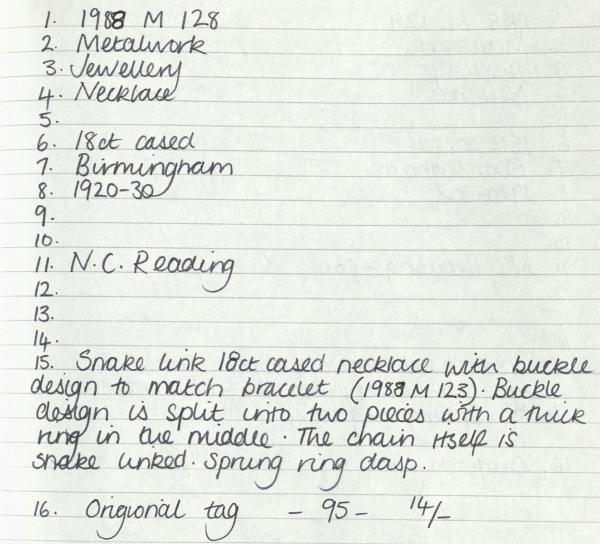 1. 1988 M 128
2. Metalwork
3. Jewellery
4. Necklace
5.
6. 18ct cased
7. Birmingham
8. 1920-30
9.
10.
11. N.C. Reading
12.
13.
14.
15. Snake link 18ct cased necklace with buckle
design to match bracelet (1988 M 123). Buckle
design is split into two pieces with a thick
ring in the middle. The chain itself is
snake linked. Sprung ring clasp.
16. Origional tag - 95 - 14/-